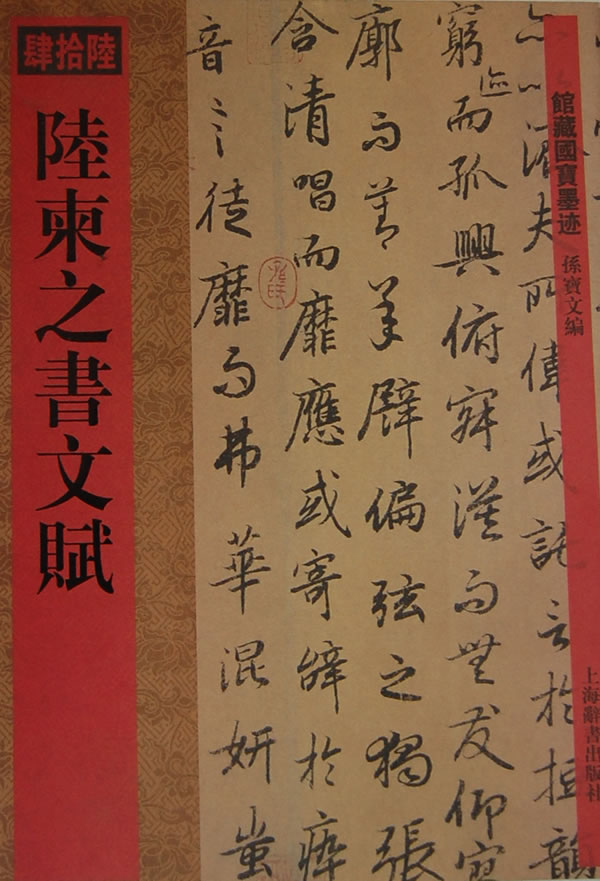 肆拾陸
陸柬之書文賦
館藏國寶墨迹
孫寶文編
上海辭書出版社
亦濟夫所偉或託言於短韻
窮迹而孤興俯寂漠而無友仰寥
廓而莫承譬偏弦之獨張
含清唱而靡應或寄辭於瘁
音言徒靡而弗華混妍蚩